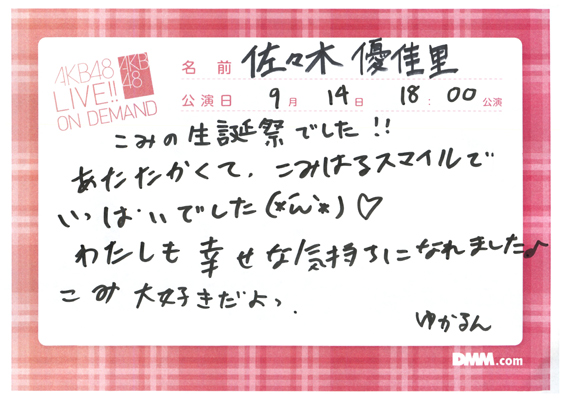 AKB48
LIVE!!
ON DEMAND
AKB
48
名前 佐々木 優佳里
公演日 9月 14日 18:00公演
こみの生誕祭でした!!
あたたかくて、こみはるスマイルで
いっぱいでした(*´ω`*)♡
わたしも幸せな気持ちになれました♪
こみ大好きだよっ.
ゆかるん
DMM.com